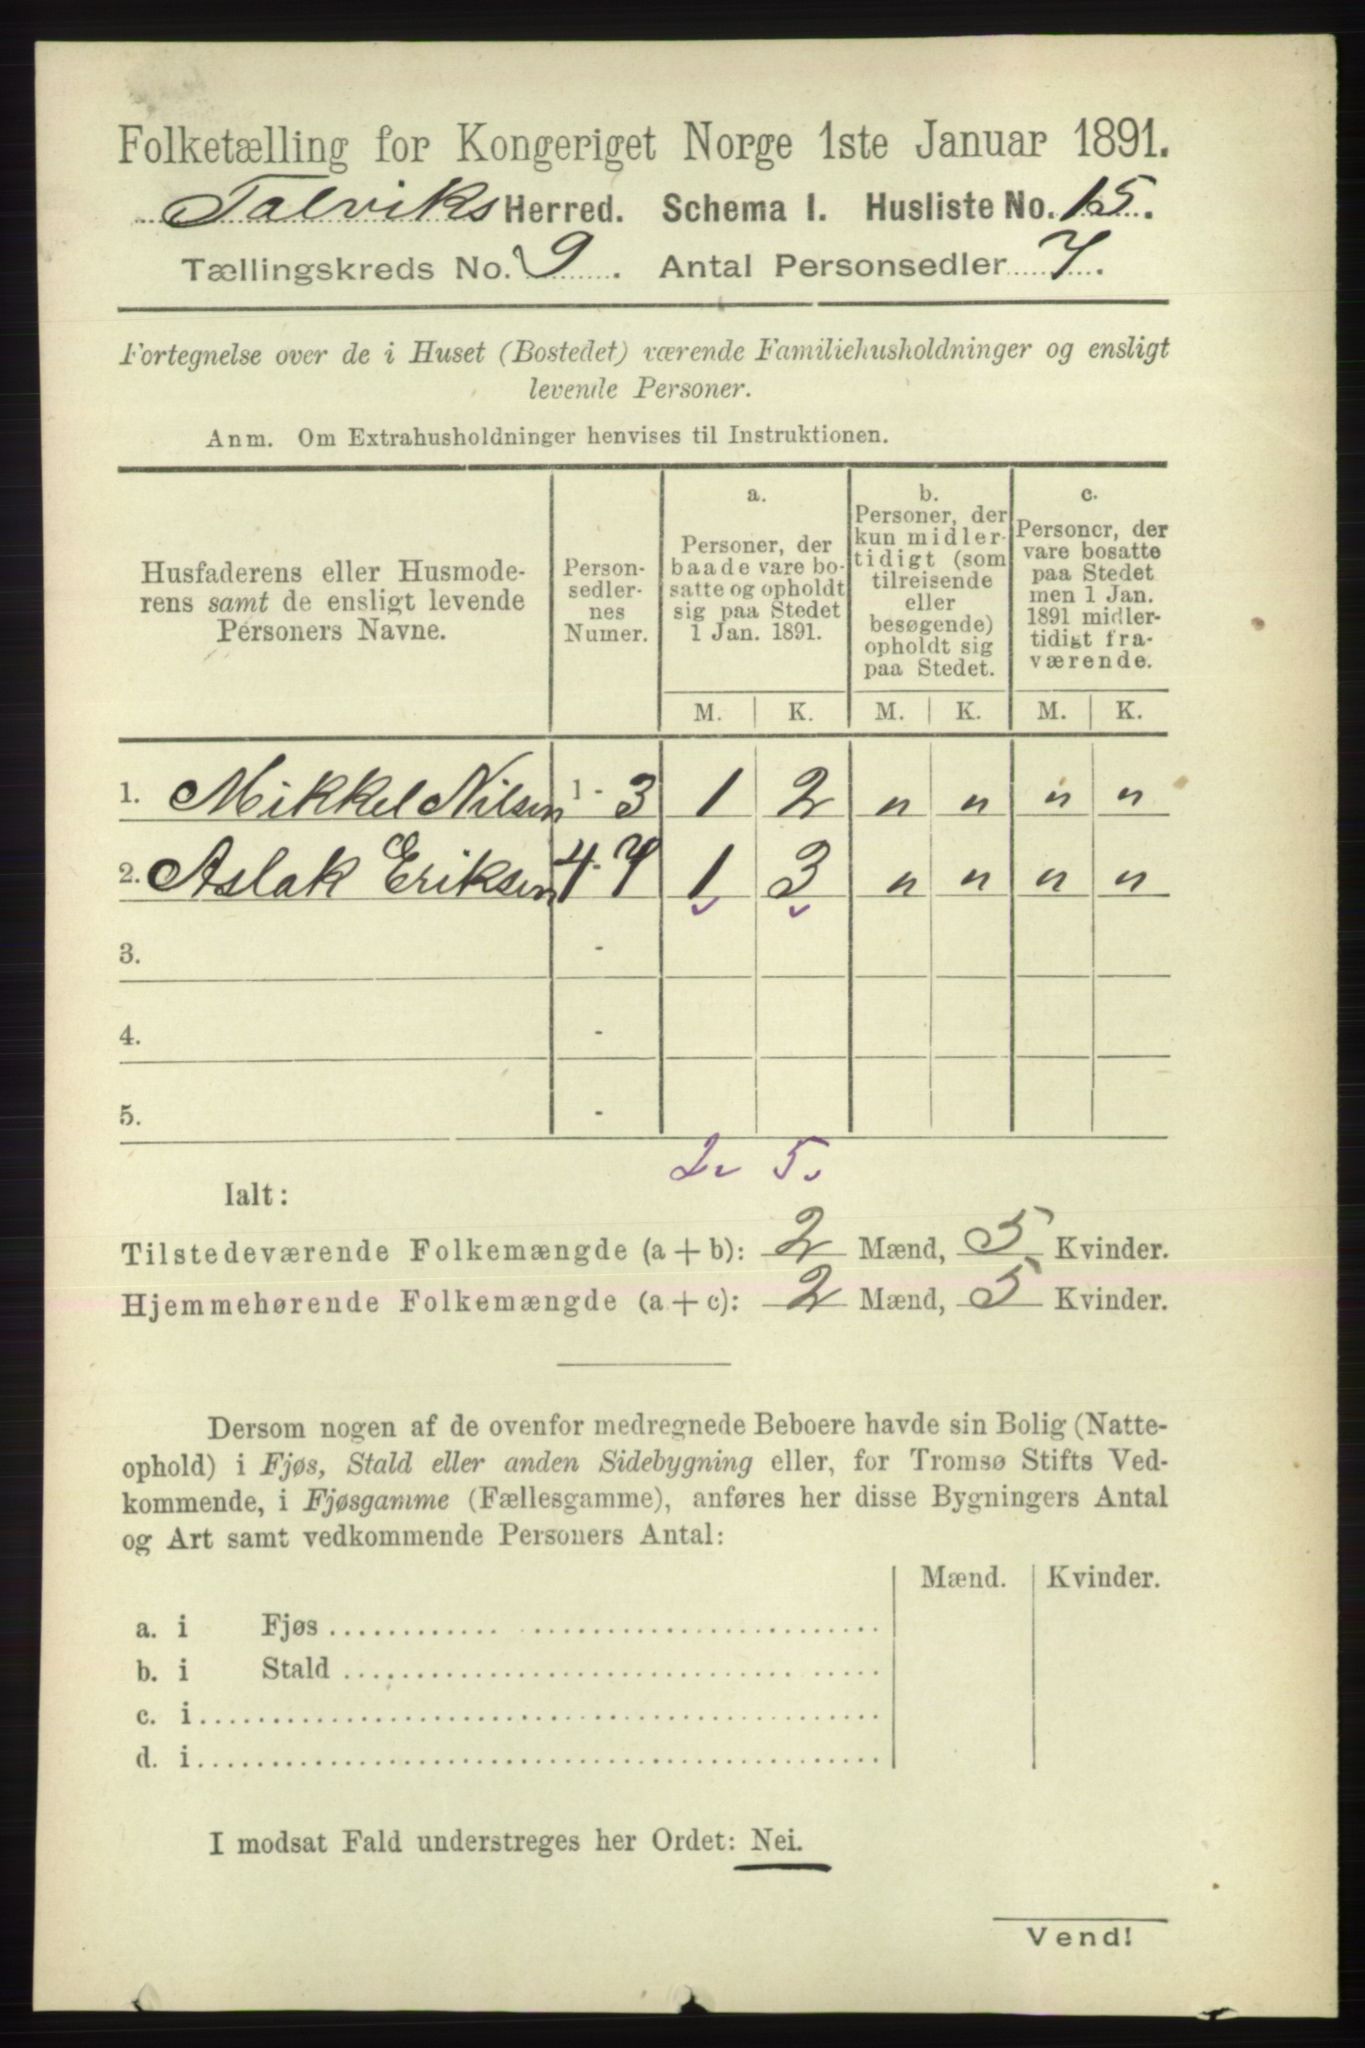 Folketælling for Kongeriget Norge 1ste Januar 1891.
Talviks Herred. Schema I. Husliste No. 15.
Tællingskreds No. 9. Antal Personsedler 7.
Fortegnelse over de i Huset (Bostedet) værende Familiehusholdninger og ensligt
levende Personer.
Anm. Om Extrahusholdninger henvises til Instruktionen.
Husfaderens eller Husmode-
rens samt de ensligt levende
Personers Navne.
Person-
sedler-
nes
Numer.
a.
Personer, der
baade vare bo-
satte og opholdt
sig paa Stedet
1 Jan. 1891.
b.
Personer, der
kun midler-
tidigt (som
tilreisende
eller
besøgende)
opholdt sig
paa Stedet.
c.
Personer, der
vare bosatte
paa Stedet
men 1 Jan.
1891 midler-
tidigt fra-
værende.
M. K. M. K. M. K.
1. Mikkel Nilsen 1 - 3 1 2 " " " "
2. Aslak Eriksen 4 - 7 1 3 " " " "
3. -
4. -
5. -
2. 5.
Ialt:
Tilstedeværende Folkemængde (a + b): 2 Mænd, 5 Kvinder.
Hjemmehørende Folkemængde (a + c): 2 Mænd, 5 Kvinder.
Dersom nogen af de ovenfor medregnede Beboere havde sin Bolig (Natte-
ophold) i Fjøs, Stald eller anden Sidebygning eller, for Tromsø Stifts Ved-
kommende, i Fjøsgamme (Fællesgamme), anføres her disse Bygningers Antal
og Art samt vedkommende Personers Antal:
Mænd. Kvinder.
a. i Fjøs
b. i Stald
c. i
d. i
I modsat Fald understreges her Ordet: Nei.
Vend!